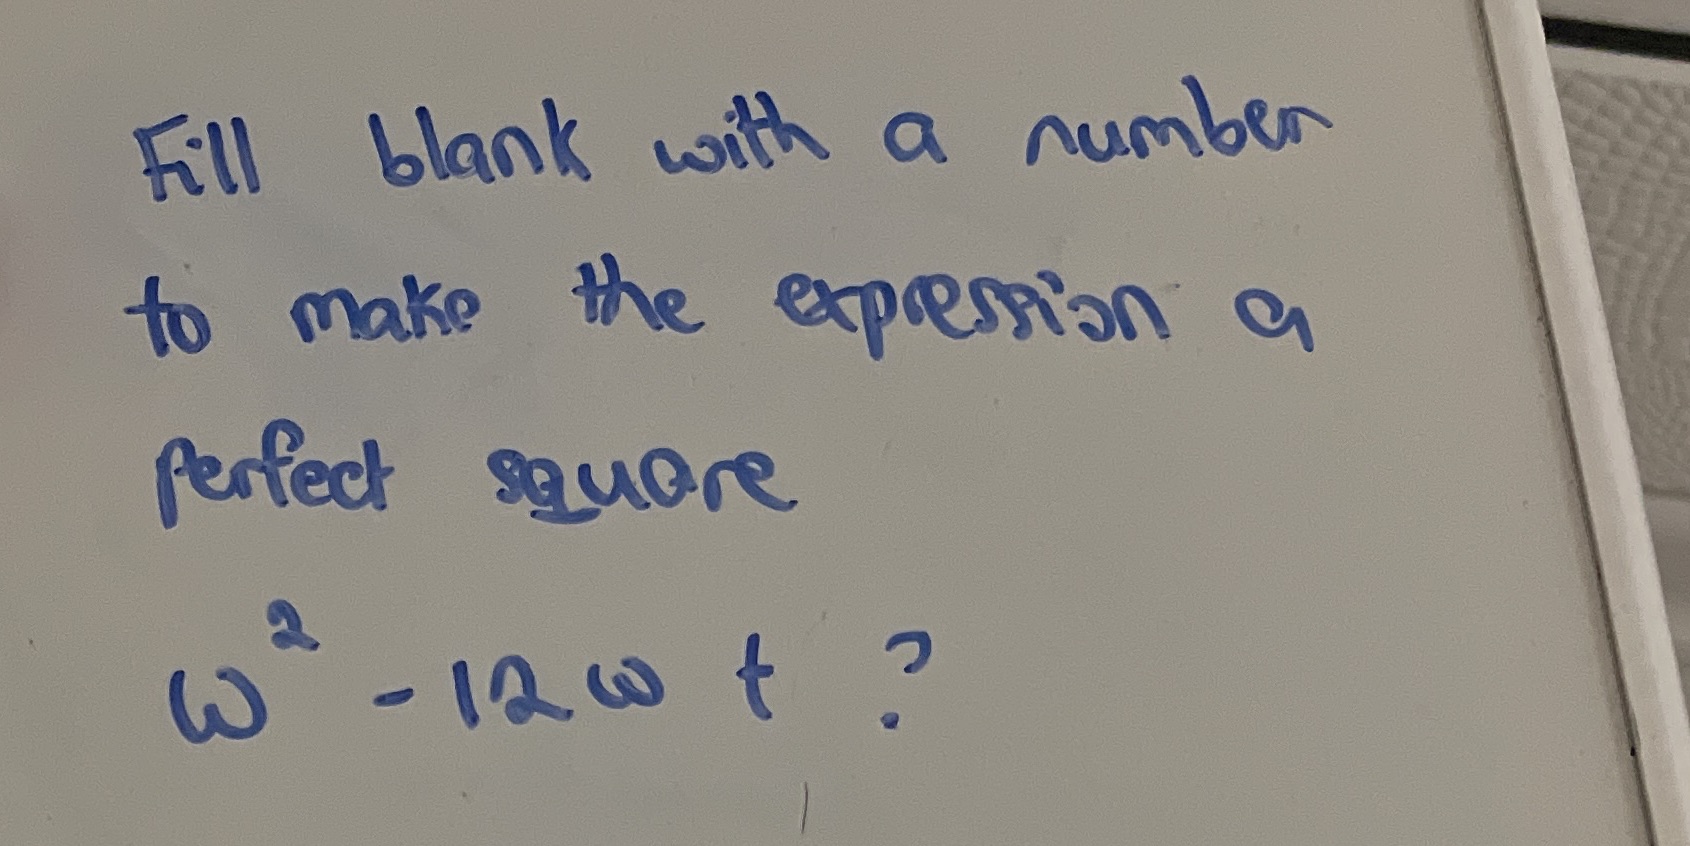 Fill blank with a number
to make the expression a
perfect square
ω² - 12ω + ?